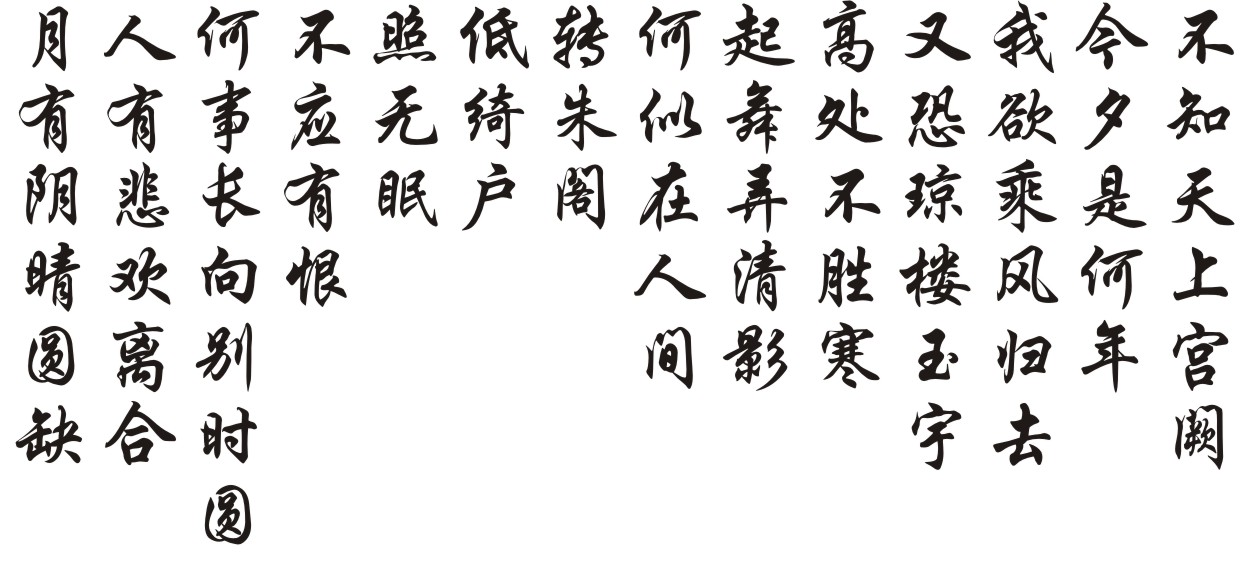 不知天上宫阙
今夕是何年
我欲乘风归去
又恐琼楼玉宇
高处不胜寒
起舞弄清影
何似在人间
转朱阁
低绮户
照无眠
不应有恨
何事长向别时圆
人有悲欢离合
月有阴晴圆缺